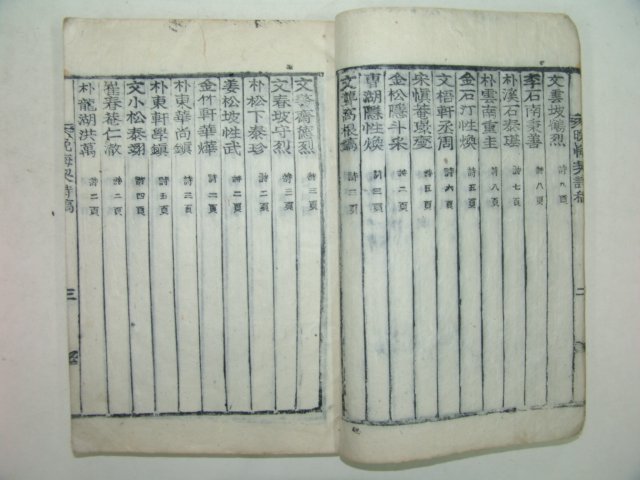 文雲坡錫烈 詩八頁
李石南秉善 詩八頁
朴溪石泰琪 詩七頁
朴雲南重圭 詩八頁
金石汀性煥 詩六頁
文梧軒丞周 詩六頁
宋愼菴 詩五頁
金松隱斗采 詩四頁
專湖隱性煥 詩三頁
文 萬根 詩
二
文 齋 烈 詩三頁
文春坡守烈 詩三頁
朴松下泰珍 詩二頁
姜松坡性武 詩二頁
金竹軒華燁 詩二頁
朴東華尚鎭 詩五頁
朴東軒學鎭 詩五頁
文小松泰翊 詩四頁
崔春菴仁澈 詩二頁
朴龍湖洪萬 詩二頁
晚悔契詩稿
三